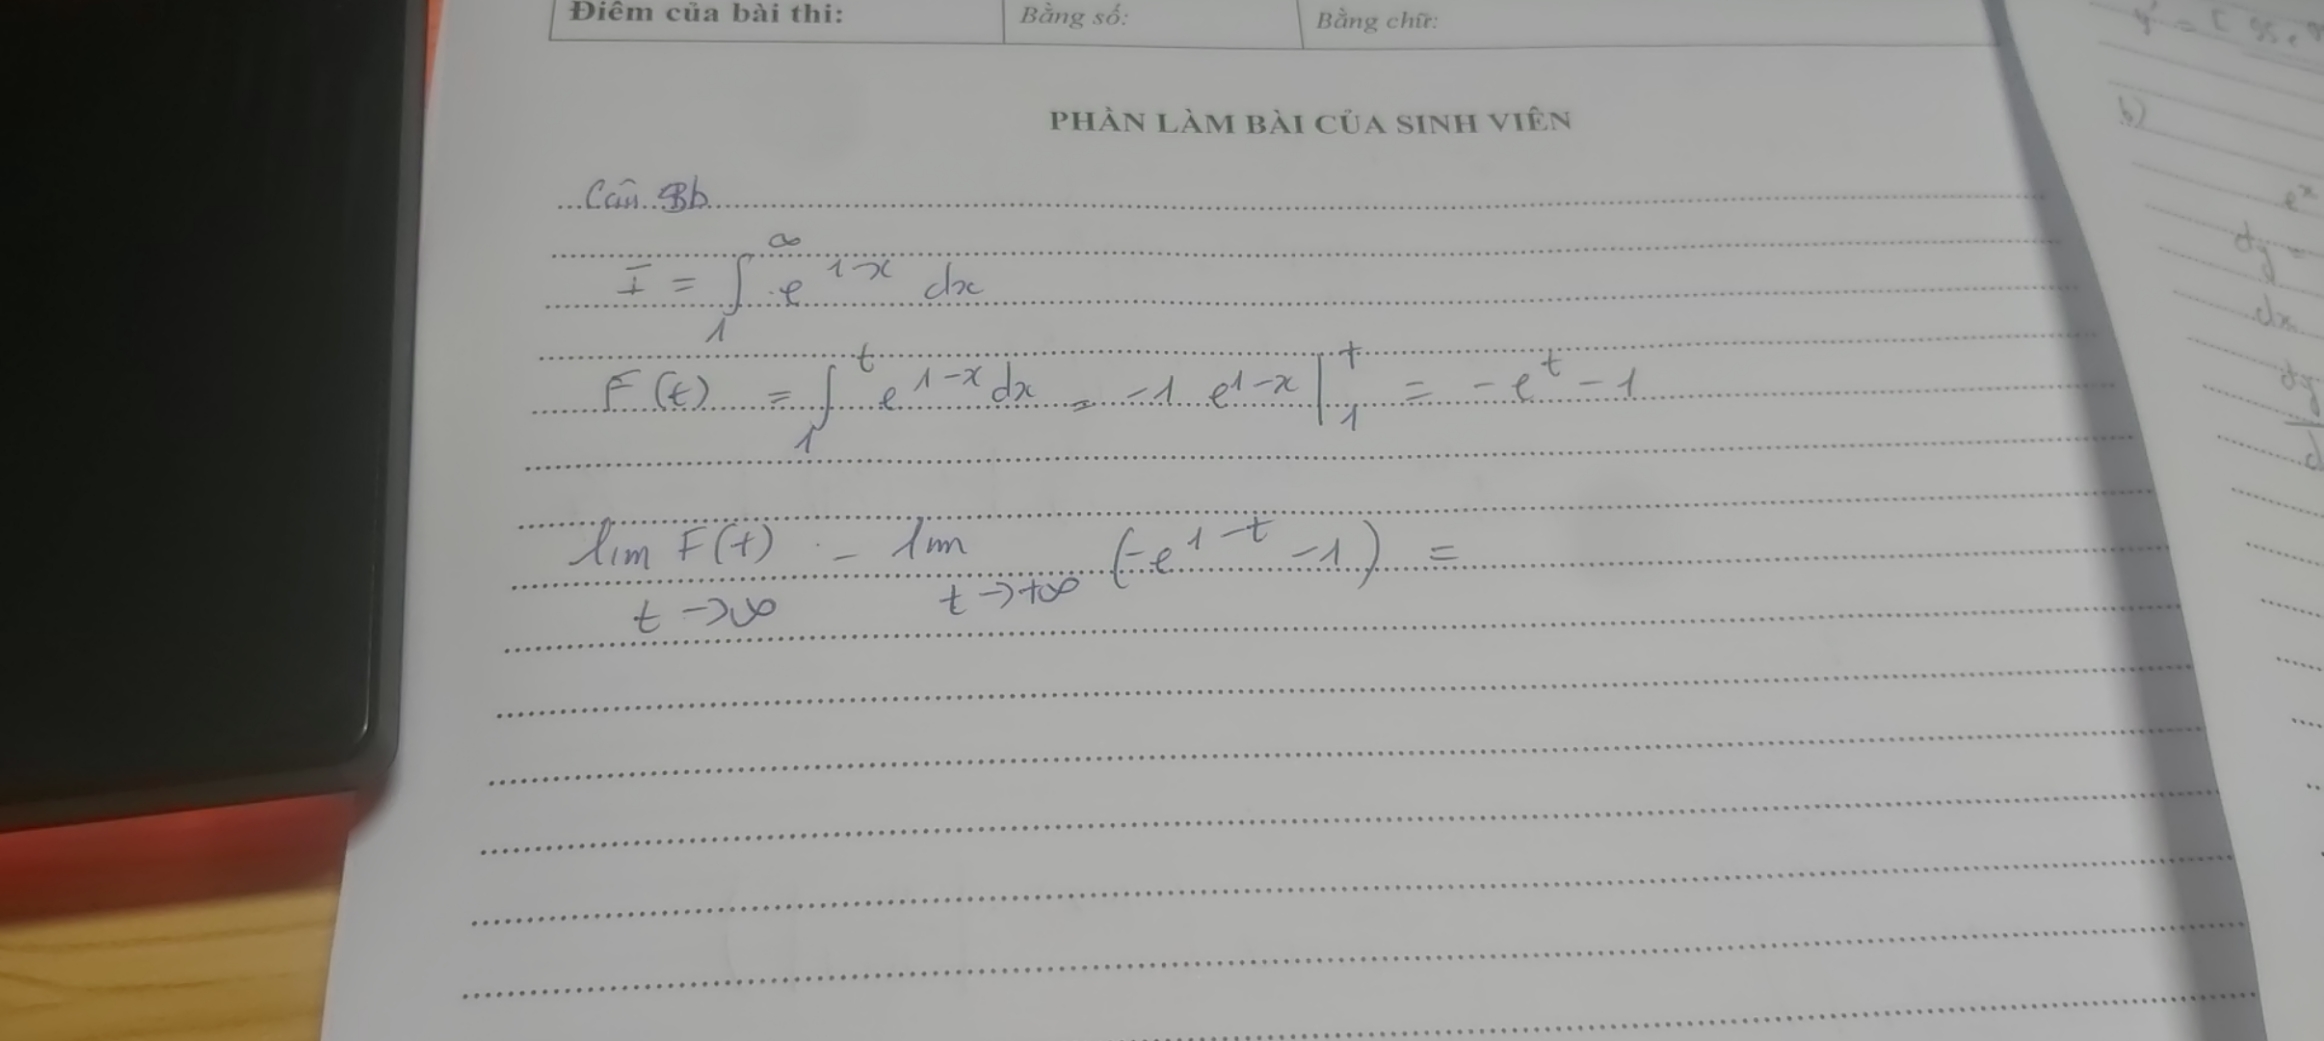 Điểm của bài thi: Bằng số: Bằng chữ:
PHẦN LÀM BÀI CỦA SINH VIÊN
Câu 3b
I = ∫₁^∞ e^{1-x} dx
F(t) = ∫₁^t e^{1-x} dx = -1 e^{1-x} |₁^t = -e^t - 1
lim F(t) = lim (-e^{1-t} - 1) =
t → ∞ t → +∞
b)
e^x
dy =
dx
dy